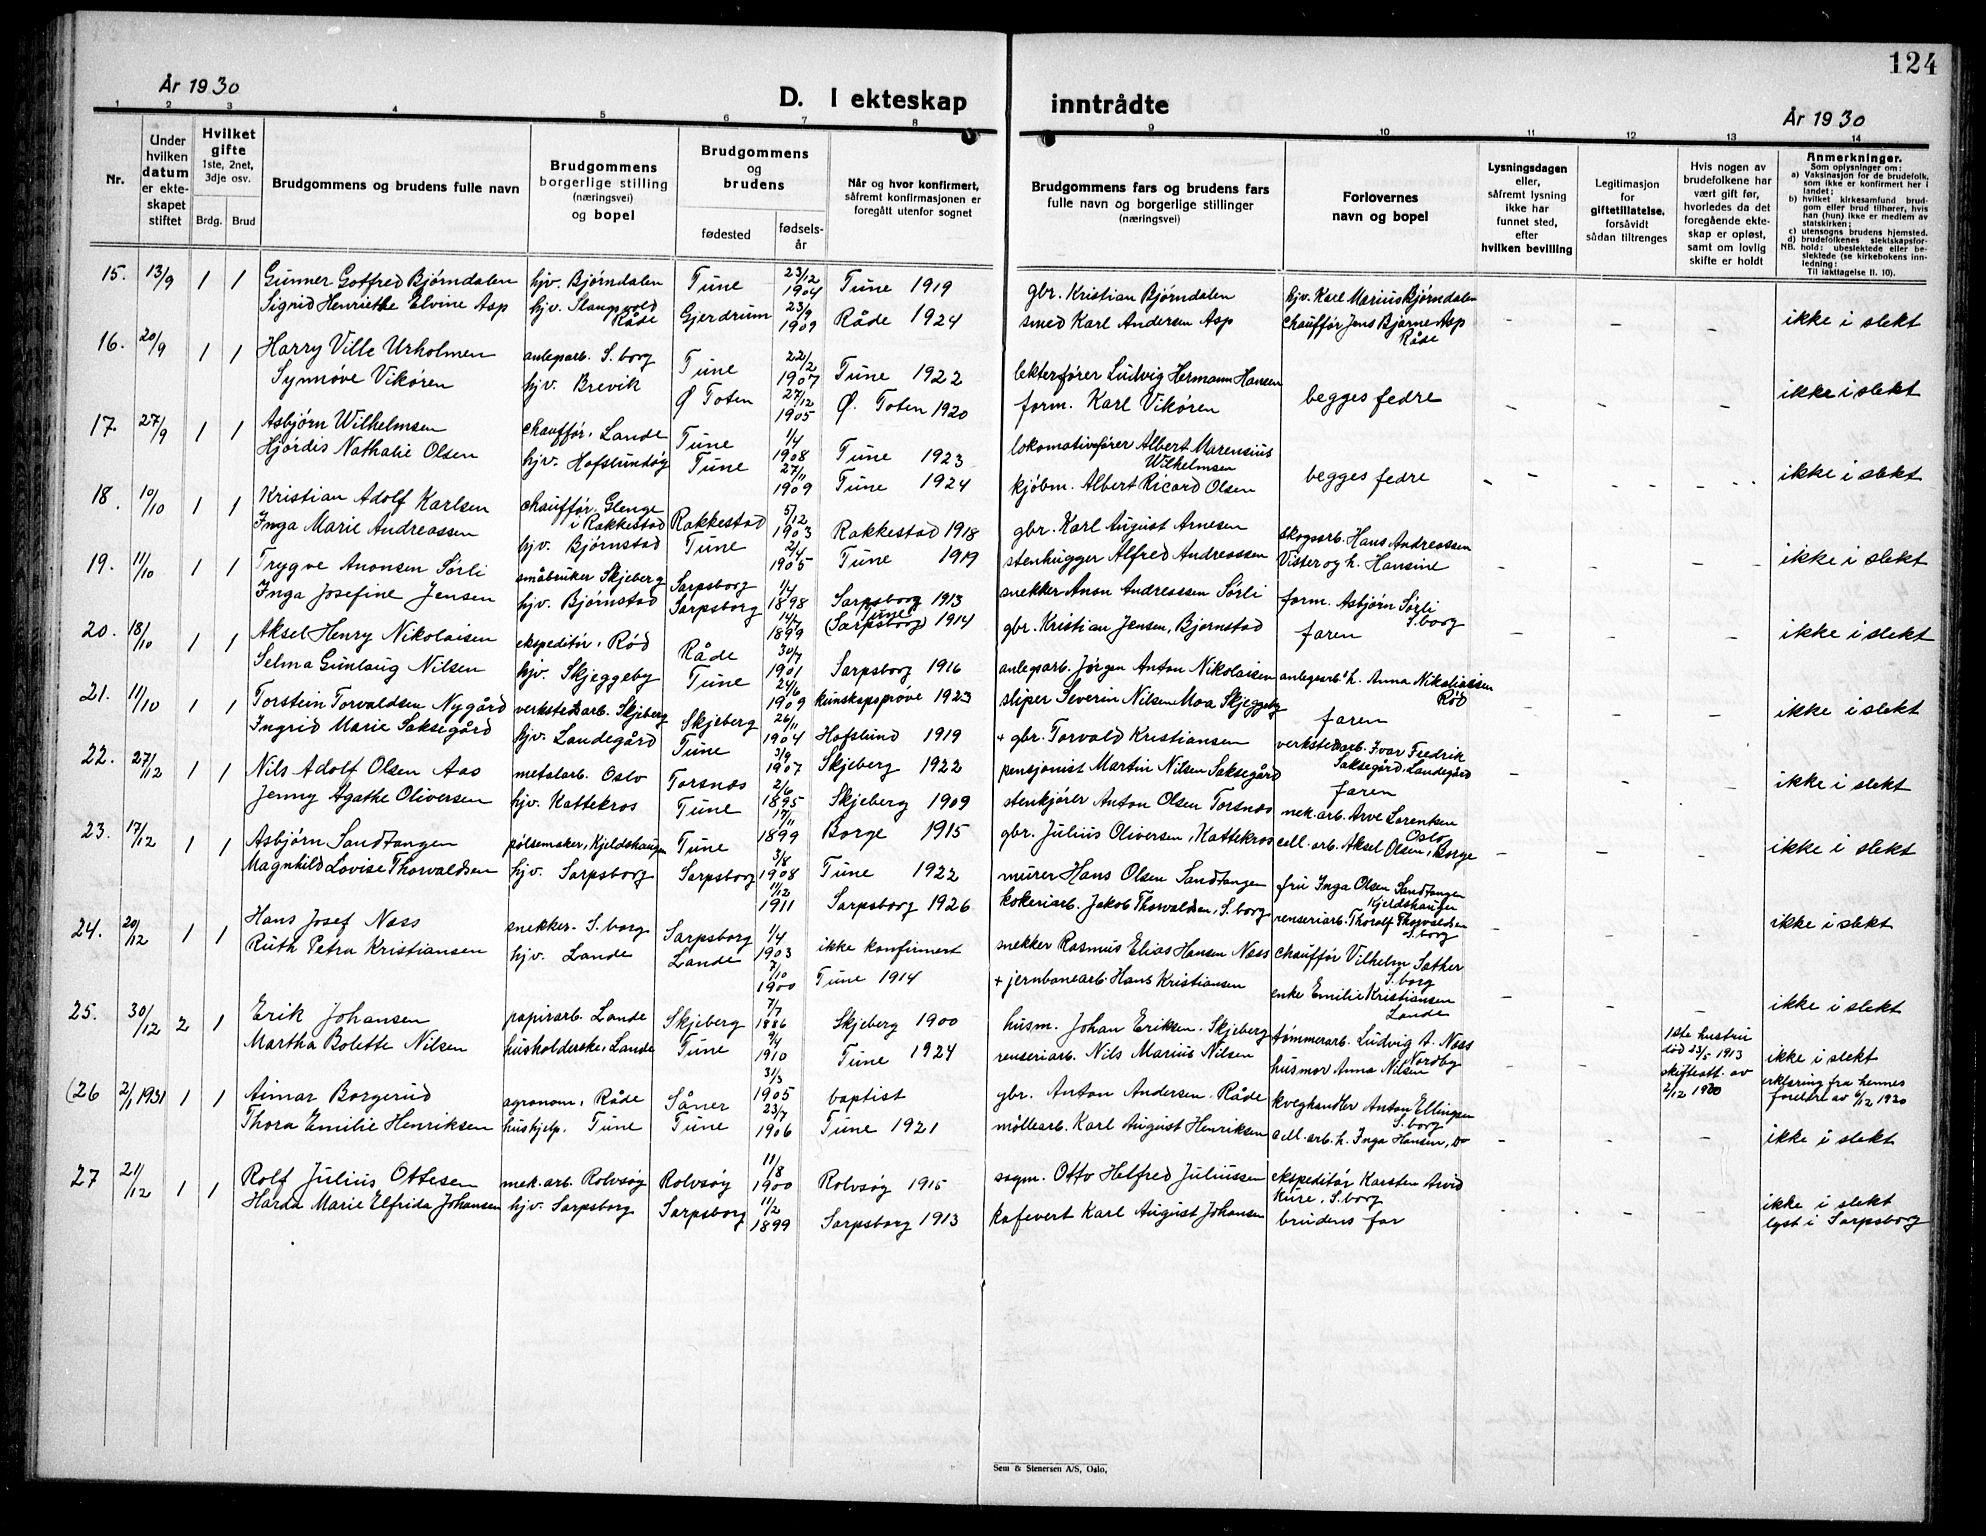 124
År 1930
D. I ekteskap inntrådte
År 1930
1 2 3 4 5 6 7 8 9 10 11 12 13 14
Nr.
Under hvilken datum er ekteskapet stiftet
Hvilket gifte 1ste, 2net, 3dje osv.
Brdg. Brud
Brudgommens og brudens fulle navn
Brudgommens borgerlige stilling (næringsvei) og bopel
Brudgommens og brudens
fødested fødselsår
Når og hvor konfirmert, såfremt konfirmasjonen er foregått utenfor sognet
Brudgommens fars og brudens fars fulle navn og borgerlige stillinger (næringsvei)
Forlovernes navn og bopel
Lysningsdagen eller, såfremt lysning ikke har funnet sted, efter hvilken bevilling
Legitimasjon for giftetillatelse, forsåvidt sådan tiltrenges
Hvis nogen av brudefolkene har vært gift før, hvorledes da det foregående ekteskap er opløst, samt om lovlig skifte er holdt
Anmerkninger.
Som oplysninger om:
a) Vaksinasjon for de brudefolk, som ikke er konfirmert her i landet;
b) hvilket kirkesamfund brudgom eller brud tilhører, hvis han (hun) ikke er medlem av statskirken;
c) utensogns brudens hjemsted.
d) brudefolkenes slektskapsforhold: ubeslektede eller beslektede (se kirkebokens innledning: Til iakttagelse II. 10).
NB.
15. 13/9 1 1 Gunner Gotfred Bjørndalen hjv. Bjørndalen Tune 23/12 1904 Tune 1919 gbr. Kristian Bjørndalen hjv. Karl Marius Bjørndalen
Sigrid Henriette Elvine Asp hjv. Slangsvold Råde Gjerdrum 23/9 1909 Råde 1924 smed Karl Andersen Asp Chauffør Jens Bjarne Asp Råde - - - ikke i slekt
16. 20/9 1 1 Harry Ville Urholmen anlegsarb. S.borg Tune 22/2 1907 Tune 1922 lekterfører Ludvig Hermann Hansen
Synnøve Vikøren hjv. Brevik Ø Toten 27/12 1905 Ø. Toten 1920 form. Karl Vikøren begges fedre - - - ikke i slekt
17. 27/9 1 1 Asbjørn Wilhelmsen chauffør, Lande Tune 1/4 1908 Tune 1923 lokomotivfører Albert Marensius Wilhelmsen
Hjørdis Nathalie Olsen hjv. Hafslundsøy Tune 27/11 1909 Tune 1924 kjøbm. Albert Ricard Olsen begges fedre - - - - ikke i slekt
18. 10/10 1 1 Kristian Adolf Karlsen chauffør, Glenge i Rakkestad Rakkestad 5/12 1903 Rakkestad 1918 gbr. Karl August Arnesen skogsarb. Hans Andreassen
Inga Marie Andreassen hjv. Bjørnstad Tune 2/4 1905 Tune 1919 stenhugger Alfred Andreassen Vister og h. Hansine - - - ikke i slekt
19. 11/10 1 1 Trygve Anonsen Sørli småbruker Skjeberg Sarpsborg 1/4 1898 Sarpsborg 1913 snekker Anon Andreassen Sørli form. Asbjørn Sørli S.borg
Inga Josefine Jensen hjv. Bjørnstad Sarpsborg 14/7 1899 (Sarpsborg) Tune 1914 gbr. Kristian Jensen, Bjørnstad faren - - - ikke i slekt
20. 18/10 1 1 Aksel Henry Nikolaisen ekspeditør, Rød Råde 30/7 1901 Sarpsborg 1916 anlegsarb. Jørgen Anton Nikolaisen anlegsarb. h. Anna Nikolaisen Rød
Selma Gunlaug Nilsen hjv. Skjeggeby Tune 24/6 1909 kunskapsprøve 1923 sliper Severin Nilsen Moa Skjeggeby faren - - - ikke i slekt
21. 11/10 1 1 Torstein Torvaldsen Nygård verkstedsarb. Skjeberg Skjeberg 26/11 1904 Hafslund 1919 + gbr. Torvald Kristiansen verkstedarb. Ivar Fredrik Saksegård, Landegård
Ingrid Marie Saksegård hjv. Landegård Tune 3/9 1907 Skjeberg 1922 pensjonist Martin Nilsen Saksegård faren - - - ikke i slekt
22. 27/12 1 1 Nils Adolf Olsen Aas metalarb. Oslo Torsnes 2/6 1895 Skjeberg 1909 stenkjører Anton Olsen Torsnes mek.arb. Arve Lorentsen Oslo
Jenny Agathe Oliversen hjv. Kattekros Tune 17/11 1899 Borge 1915 gbr. Julius Oliversen, Kattekros cell.arb. Aksel Olsen, Borge - - - ikke i slekt
23. 17/12 1 1 Asbjørn Sandtangen pølsemaker, Kjeldshaugen Tune 3/8 1908 Tune 1922 murer Hans Olsen Sandtangen fru Inga Olsen Sandtangen Kjeldshaugen
Magnhild Lovise Thorvaldsen hjv. Sarpsborg Sarpsborg 11/12 1911 Sarpsborg 1926 kokeriarb. Jakob Thorvaldsen, S.borg renseriarb. Thorolf Thorvaldsen S.borg - - - ikke i slekt
24. 20/12 1 1 Hans Josef Næss snekker. S.borg Sarpsborg 1/4 1903 ikke konfirmert snekker Rasmus Elias Hansen Næss Chauffør Vilhelm Sather S.borg
Ruth Petra Kristiansen hjv. Lande Lande 7/10 1900 Tune 1914 + jernbanearb. Hans Kristiansen enke Emilie Kristiansen Lande - - - ikke i slekt
25. 30/12 2 1 Erik Johansen papirarb. Lande Skjeberg 7/7 1886 Skjeberg 1900 husm. Johan Eriksen. Skjeberg tømmerarb. Ludvig A. Næss Nordby
Martha Bolette Nilsen husholderske, Lande Tune 9/4 1910 Tune 1924 renseriarb. Nils Marius Nilsen husmor Anna Nilsen 1ste hustru død 23/5 1913 skifteatt. av 2/12 1920 ikke i slekt
erklæring fra hennes foreldre av 6/12 1920
(26 2/1 1931 1 1 Aimar Borgerud agronom, Råde Såner 31/3 1905 baptist gbr. Anton Andersen. Råde kveghandler Anton Ellingsen S.borg
Thora Emilie Henriksen hushjelp, Tune Tune 23/7 1906 Tune 1921 møllearb. Karl August Henriksen cell.arb. h. Inga Hansen, Do - - - ikke i slekt
27 21/12 1 1 Rolf Julius Ottesen mek.arb Rolvsøy Rolvsøy 11/8 1900 Rolvsøy 1915 sagm. Otto Halfred Juliussen ekspeditør Karsten Arvid Kure, S.borg
Harda Marie Elfrida Johansen hjv. Sarpsborg Sarpsborg 11/2 1899 Sarpsborg 1913 kafevert Karl August Johansen brudens far - - - ikke i slekt
lyst i Sarpsborg
Sem & Stenersen A/S, Oslo,